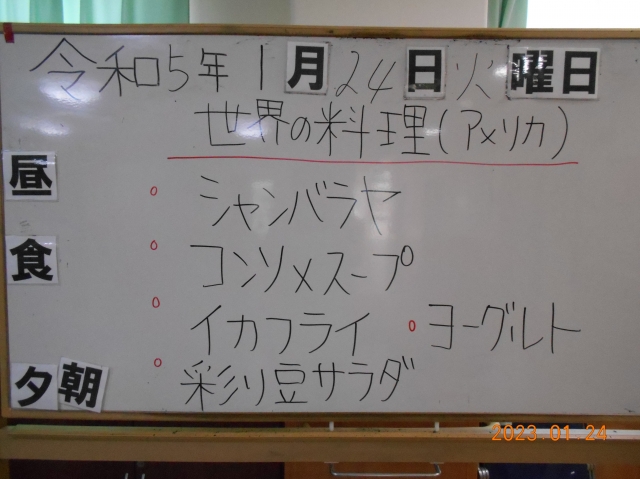 令和5年1月24日火曜日
世界の料理(アメリカ)
昼食
シャンバラヤ
コンソメスープ
イカフライ ヨーグルト
彩り豆サラダ
夕朝
2023.01.24